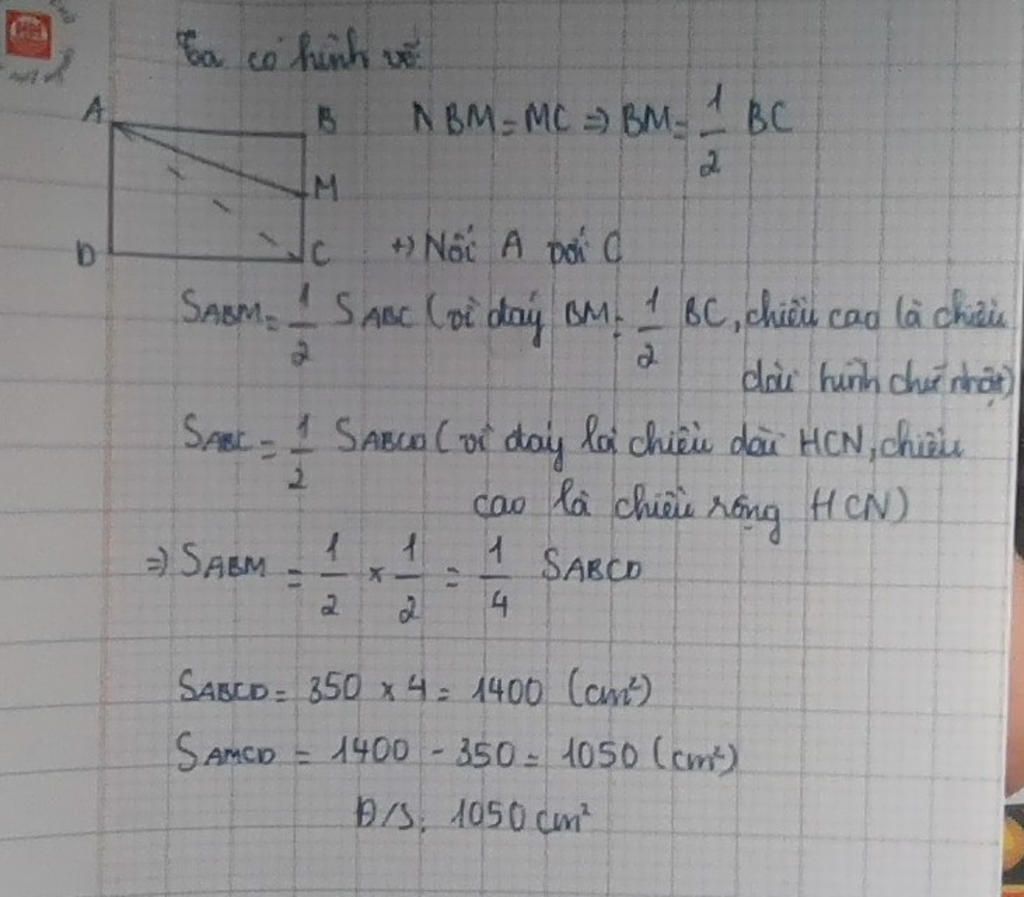 Ta có hình vẽ:
A
B
BM = MC => BM = 1/2 BC
M
D
C
+) Nối A với C
SABM = 1/2 SABC (vì đáy BM = 1/2 BC, chiều cao là chiều
dài hình chữ nhật)
SABC = 1/2 SABCD (vì đáy là chiều dài HCN, chiều
cao là chiều rộng HCN)
=> SABM = 1/2 x 1/2 = 1/4 SABCD
SABCD = 350 x 4 = 1400 (cm²)
SAMCD = 1400 - 350 = 1050 (cm²)
Đ/S: 1050 cm²